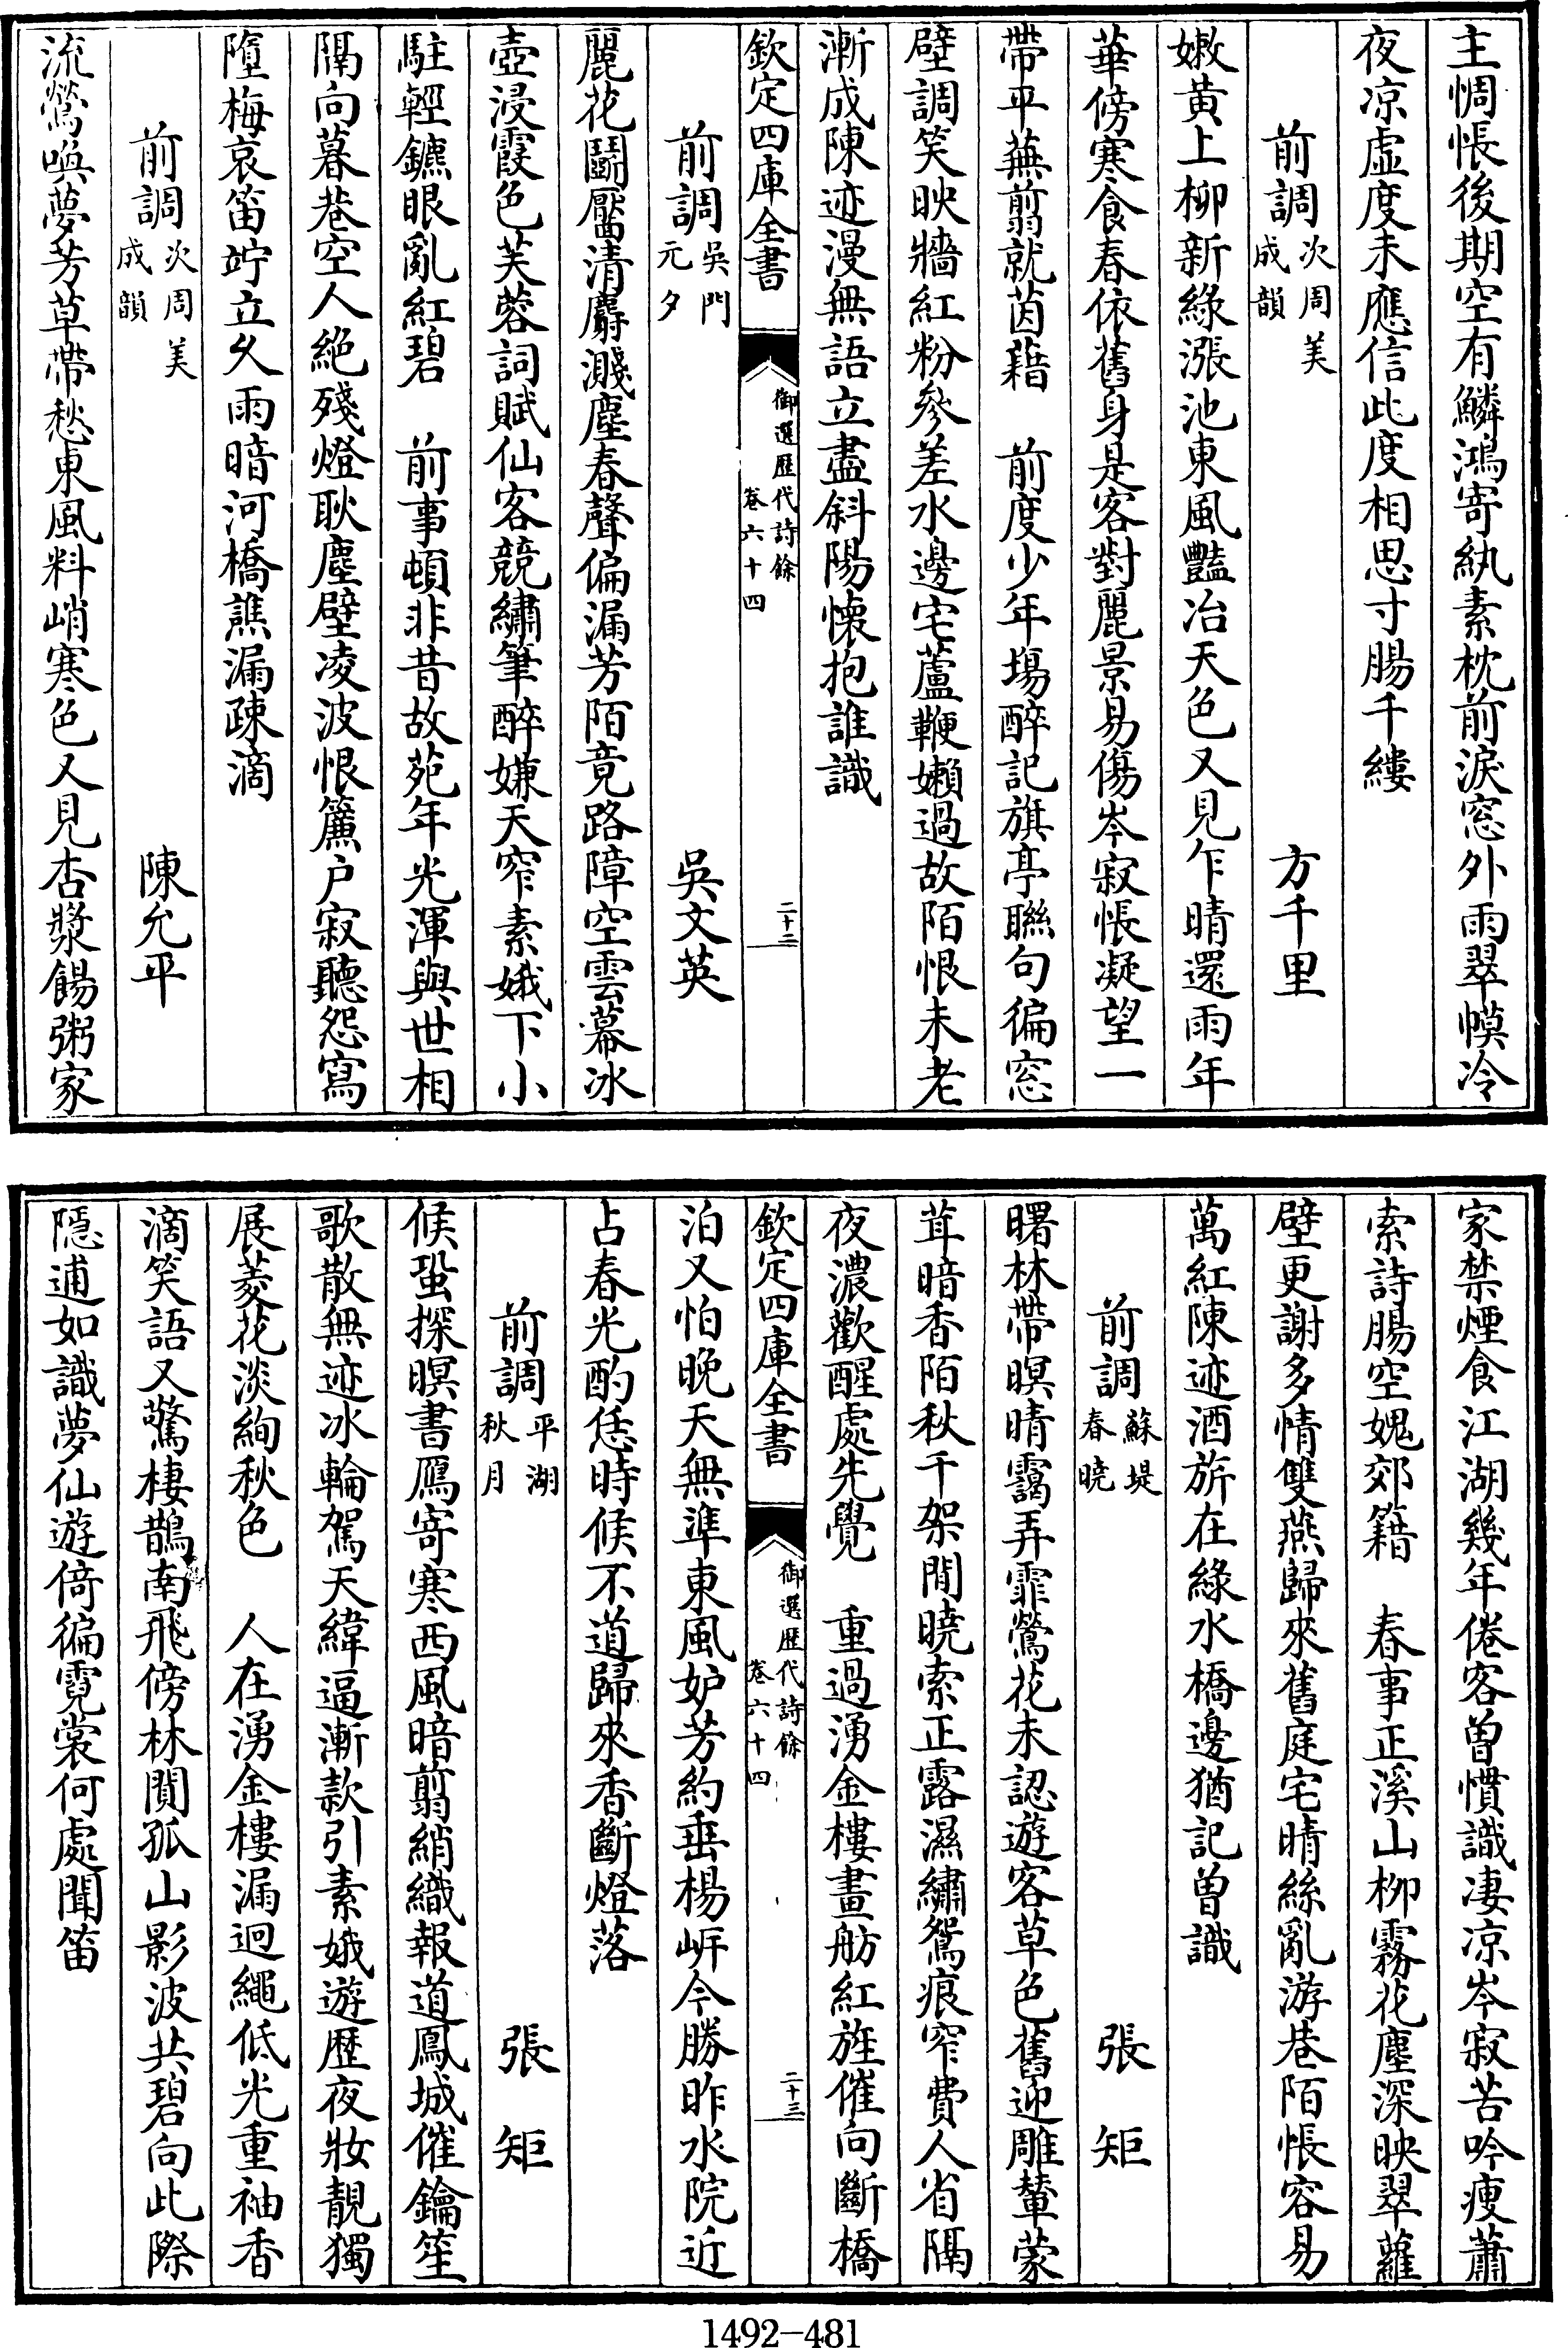 主惆悵後期空有鱗鴻寄紈素枕前淚窓外雨翠幙冷
夜凉虚度未應信此度相思寸腸千縷
前調次周美成韻　方千里
嫩黃上柳新綠漲池東風豔冶天色又見乍晴還雨年
華傍寒食春依舊身是客對麗景易傷岑寂悵凝望一
帶平蕪翦就茵藉　前度少年塲醉記旗亭聯句徧窓
壁調笑映牆紅粉參差水邊宅蘆鞭嬾過故陌恨未老
漸成陳迹漫無語立盡斜陽懐抱誰識
欽定四庫全書　御選歴代詩餘卷六十四　二十二
前調吳門元夕　吳文英
麗花鬭靨清麝濺塵春聲偏漏芳陌竟路障空雲幕冰
壺浸霞色芙蓉詞賦仙客競繡筆醉嫌天窄素娥下小
駐輕鑣眼亂紅碧　前事頓非昔故苑年光渾與世相
隔向暮巷空人絶殘燈耿塵壁凌波恨簾户寂聽怨寫
墮梅哀笛竚立久雨暗河橋譙漏疎滴
前調次周美成韻　陳允平
流鶯喚夢芳草帶愁東風料峭寒色又見杏漿餳粥家
家禁煙食江湖幾年倦客曽慣識凄凉岑寂苦吟瘦蕭
索詩腸空媿郊籍　春事正溪山柳霧花塵深映翠蘿
壁更謝多情雙燕歸來舊庭宅晴絲亂游巷陌悵容易
萬紅陳迹酒旂在綠水橋邊猶記曽識
前調蘇堤春曉　張矩
曙林帶暝晴靄弄霏鶯花未認遊客草色舊迎雕輦蒙
茸暗香陌秋千架閒曉索正露濕繡鴛痕窄費人省隔
夜濃歡醒處先覺　重過湧金樓畫舫紅旌催向斷橋
欽定四庫全書　御選歴代詩餘卷六十四　二十三
泊又怕晚天無準東風妒芳約垂楊岍今勝昨水院近
占春光酌恁時候不道歸來香斷燈落
前調平湖秋月　張矩
候蛩探暝書鴈寄寒西風暗翦綃織報道鳳城催鑰笙
歌散無迹冰輪駕天緯逼漸款引素娥遊歴夜妝靚獨
展菱花淡絢秋色　人在湧金樓漏迥繩低光重袖香
滴笑語又驚棲鵲南飛傍林閒孤山影波共碧向此際
隱逋如識夢仙遊倚徧霓裳何處聞笛
1492-481